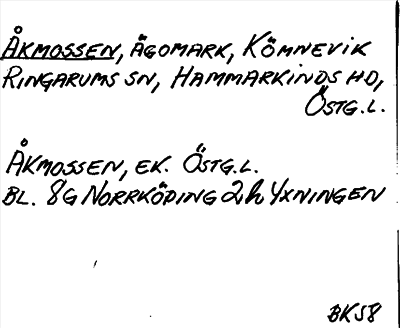 ÅKMOSSEN, ÄGOMARK, KÖMNEVIK
RINGARUMS SN, HAMMARKINDS HD,
ÖSTG.L.
ÅKMOSSEN, EK. ÖSTG.L.
BL. 8G NORRKÖPING 2h YXNINGEN
BKS8